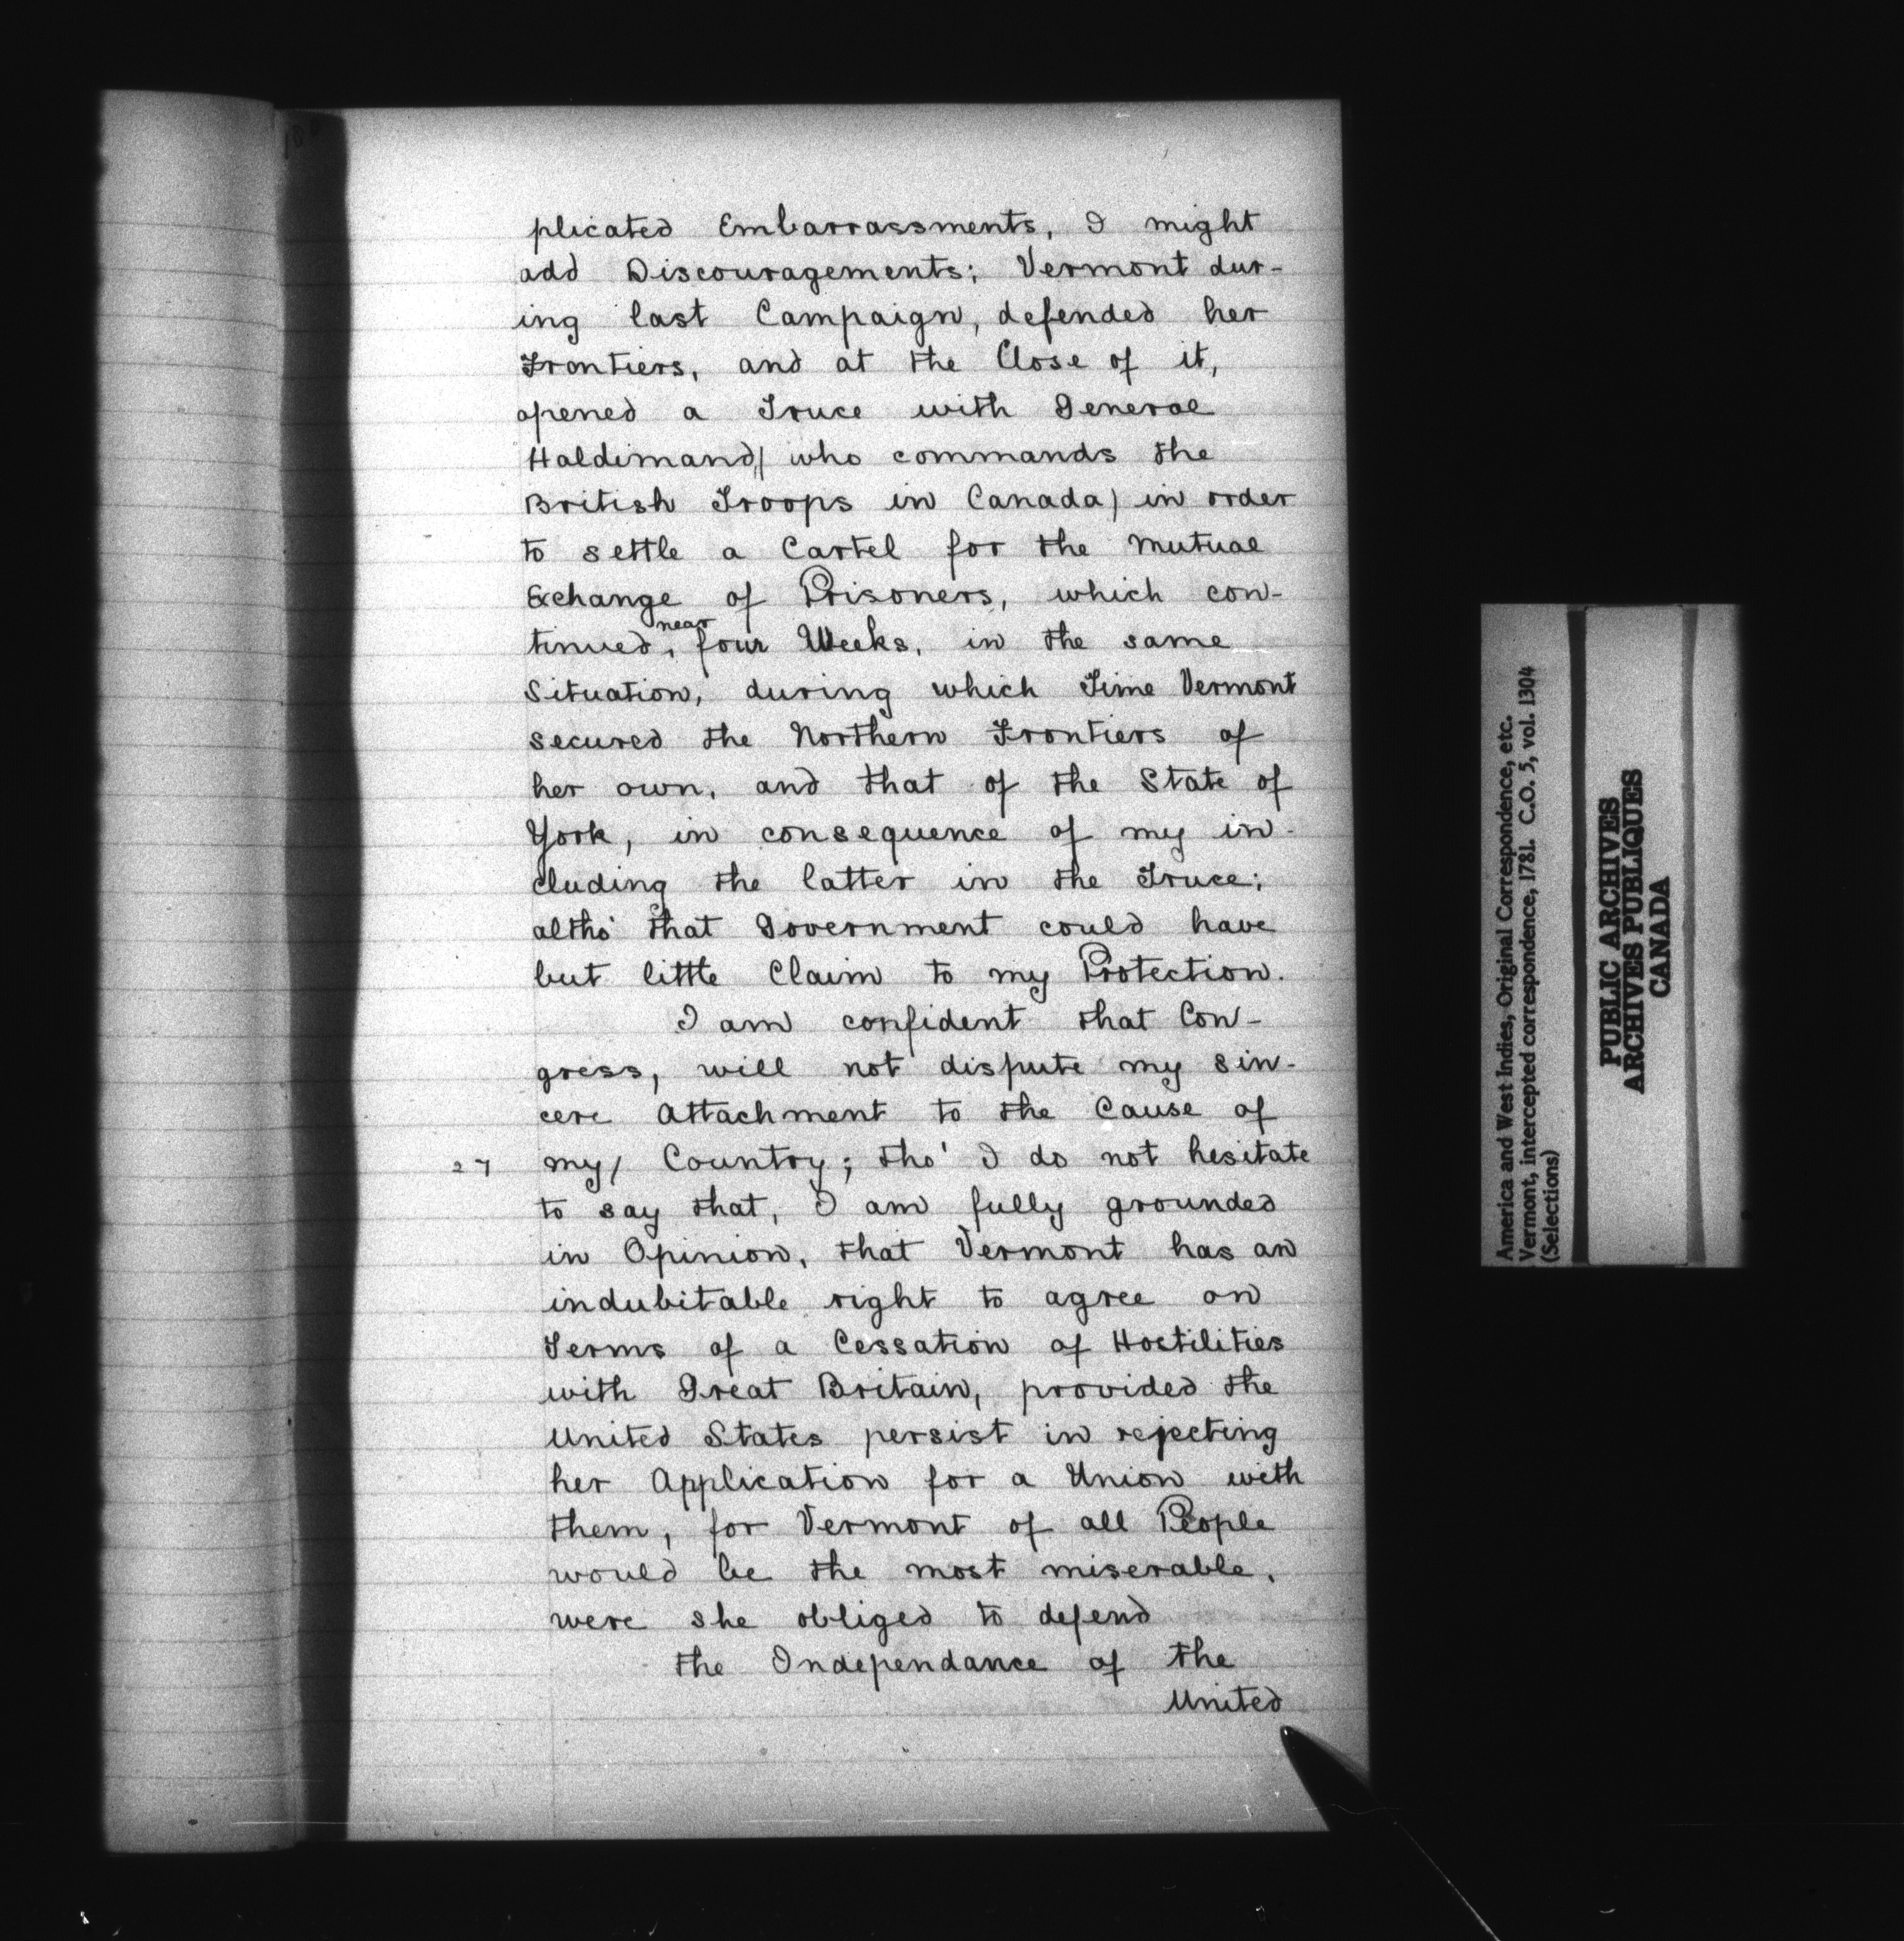 plicated Embarrassments, I might
add Discouragements; Vermont dur-
ing last Campaign, defended her
Frontiers, and at the Close of it,
opened a Truce with General
Haldimand,( who commands the
British Troops in Canada) in order
to settle a Cartel for the mutual
Exchange of Prisoners, which con-
near
tinued, four Weeks, in the same
Situation, during which Time Vermont
secured the Northern Frontiers of
her own, and that of the State of
York, in consequence of my in-
cluding the latter in the Truce;
altho' that Government could have
but little Claim to my Protection.
I am confident that Con-
gress, will not dispute my sin-
cere Attachment to the Cause of
27 my/ Country; tho' I do not hesitate
to say that, I am fully grounded
in Opinion, that Vermont has an
indubitable right to agree on
Terms of a Cessation of Hostilities
with Great Britain, provided the
United States persist in rejecting
her Application for a Union with
them, for Vermont of all People
would be the most miserable,
were she obliged to defend
the Independance of the
United
America and West Indies, Original Correspondence, etc.
Vermont, intercepted correspondence, 1781. C.O. 5, vol. 1304
(Selections)
PUBLIC ARCHIVES
ARCHIVES PUBLIQUES
CANADA